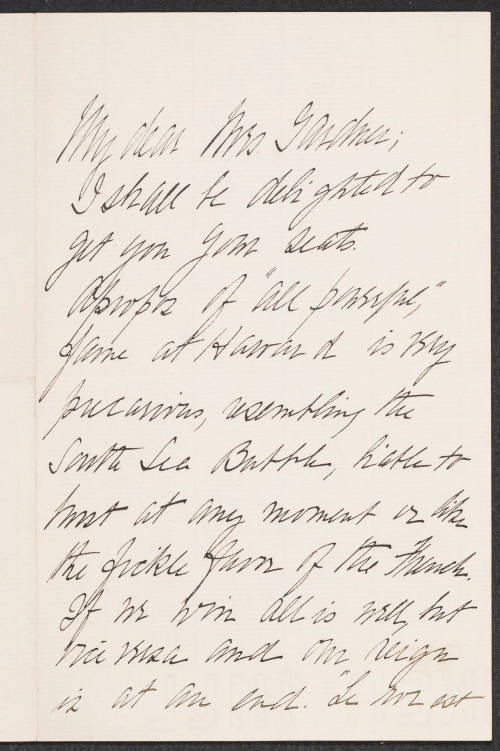 My dear Mrs. Gardner;
I shall be delighted to
get you your seats.
Apropos of "all powerful,"
fame at Harvard is very
precarious, resembling the
South Sea Bubble, liable to
burst at any moment or like
the fickle favor of the French.
If we win all is well, but
vice versa and our reign
is at an end. "Le roi est